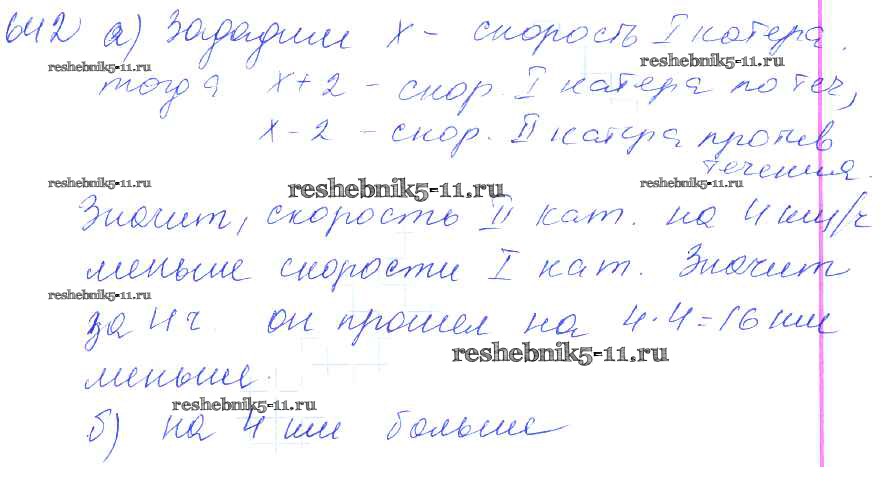 642 а) Зададим x - скорость I катера.
reshebnik5-11.ru reshebnik5-11.ru
тогда x+2 - скор. I катера по теч,
x-2 - скор. II катера против
течения.
reshebnik5-11.ru reshebnik5-11.ru reshebnik5-11.ru
Значит, скорость II кат. на 4 км/ч
меньше скорости I кат. Значит
reshebnik5-11.ru
за 4 ч. он прошел на 4·4=16 км
reshebnik5-11.ru
меньше.
reshebnik5-11.ru
б) на 4 км больше